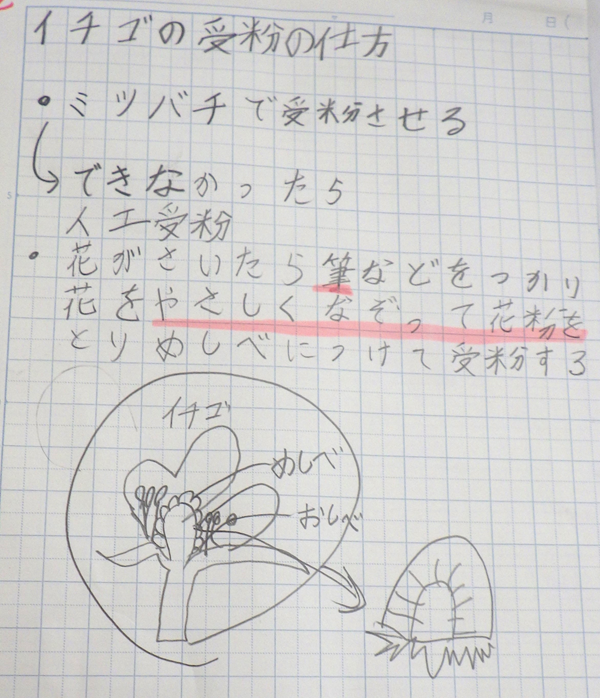 月 日(
イチゴの受粉の仕方
• ミツバチで受粉させる
できなかったら
人工受粉
• 花がさいたら筆などをつかり
花をやさしくなぞって花粉を
とりめしべにつけて受粉する
イチゴ
めしべ
おしべ